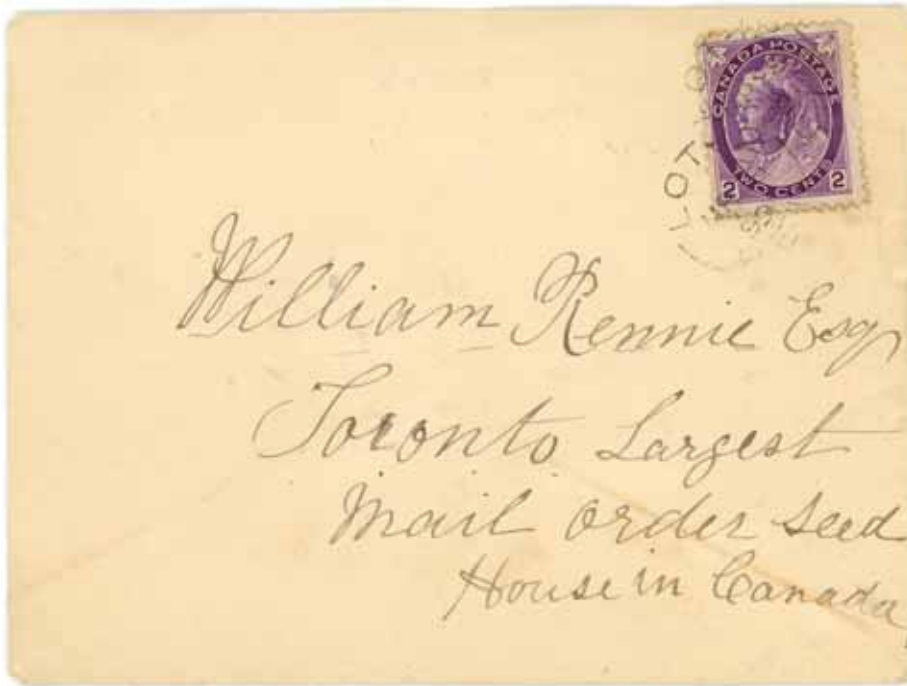 CANADA POSTAGE
TWO CENTS
2 2
LOT
William Rennie Esq
Toronto Largest
Mail order seed
House in Canada